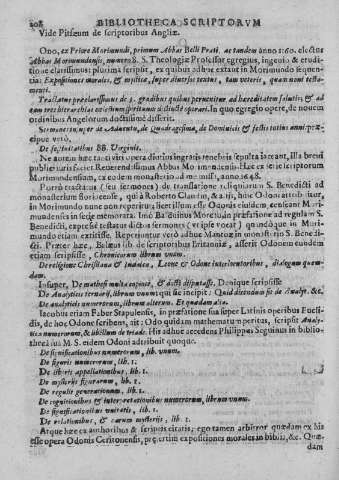 208 BIBLIOTHECA SCRIPTORVM
Vide Pitsæum de scriptoribus Angliæ.
Odo, ex Priore Morimundi, primum Abbas Belli Prati, ac tandem anno 1160. electus
Abbas Morimundensis, numero 8. S. Theologiæ Professor egregius, ingenio & erudi-
tione clarissimus; plurima scripsit, ex quibus adhuc extant in Morimundo sequen-
tia: Expositiones morales, & mysticæ, super diversos textus, tam veteris, quam novi testa-
menti.
Tractatus præclarissimus de 3. gradibus quibus pervenitur ad hæreditatem salutis; & ad
tam tres hierarchias cœlestium spirituum distinctè operari. In quo egregio opere, de novem
ordinibus Angelorum doctissimè disserit.
Sermones, super de Adventu, de Quadragesima, de Dominicis & festis totius anni præ-
cipuè verò,
De festivitatibus BB. Virginis.
Ne autem hæc tanti viri opera diutius ingratis tenebris sepulta jaceant, illa brevi
publici juris faciet Reverendissimus Abbas Morimundensis. Hæc ex scriptoribus
Morimundensibus, ex eodem monasterio ad me missis, anno 1648.
Porrò tractatus (seu sermones) de translatione reliquiarum S. Benedicti ad
monasterium floriacense, quia à Roberto Claudio, & aliis, huic Odoni attribuitur,
in Morimundo nunc non repertus fuerit illum esse Odonis ejusdem, censeant Mori-
mundenses in scriptis memorata. Imò Balduinus Moreau in præfatione ad regulam S.
Benedicti, expressè testatur dictos sermones (vel ipse vocat) quondam in Mori-
mundo etiam extitisse. Reperiuntur verò adhuc Manuscripti in monasterio S. Bene-
dicti. Præter hæc, Balæus lib. de scriptoribus Britanniæ, asserit Odonem eundem
etiam scripsisse, Chronicorum librum unum.
De religione Christiana & Judaica, Leone & Odone interlocutoribus, dialogum quem-
dam.
Insuper, De mathesi multa exquisitè, & doctè disputasse, Denique scripsisse
De Analyticis ternarii, librum unum qui sic incipit: Quid dicendum sit de Analysi, &c.
De analyticis numerorum, librum alterum. Et quædam alia.
Jacobus etiam Faber Stapulensis, in præfatione sua super Latinis operibus Eucli-
dis, de hoc Odone scribens, ait: Odo quidam mathematum peritus, scripsit Analy-
tica numerorum, & libellum de triade. His adhuc accedens Philippus Seguinus in biblio-
theca sua M. S. eidem Odoni attribuit quoque.
De significationibus numerorum, lib. unum.
De figuris numerorum, lib. 1.
De literis appellationibus, lib. 1.
De mysteriis figurarum, lib. 1.
De regulis generationum, lib. 1.
De cognitionibus & interpretationibus numerorum, librum unum.
De significationibus unitatis, lib. 1.
De relationibus, & earum mysteriis, lib. 1.
Atque hæc ex authoribus & scriptis citatis; ego tamen arbitror quædam ex his
esse opera Odonis Ceritonensis, præsertim expositiones morales in biblia, &c. Quæ-
dam